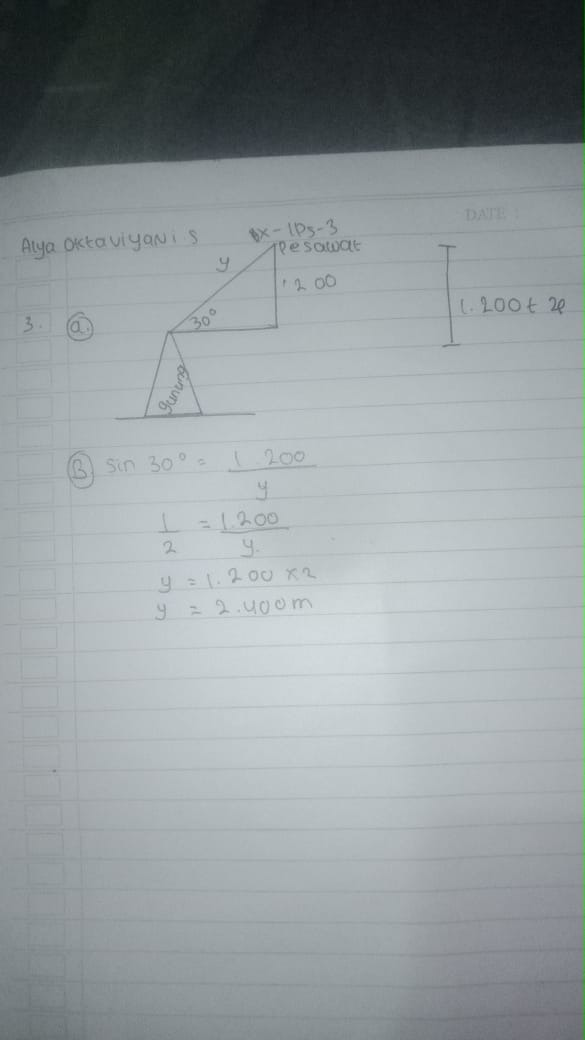 DATE :
Alya Oktaviyani S
X-IPS-3
Pesawat
y
1.200
3. a.
30°
gunung
B sin 30° = 1.200
y
1 = 1.200
2 y.
y = 1.200 x 2
y = 2.400m